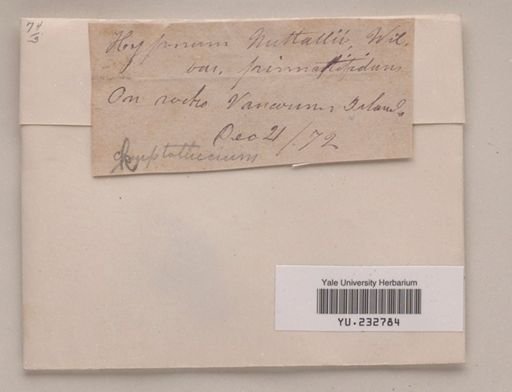 74
3
Hypnum Nuttallii, Wil.
var.
On rocks Vancouver Island
Dec 21/72
Yale University Herbarium
YU.232784